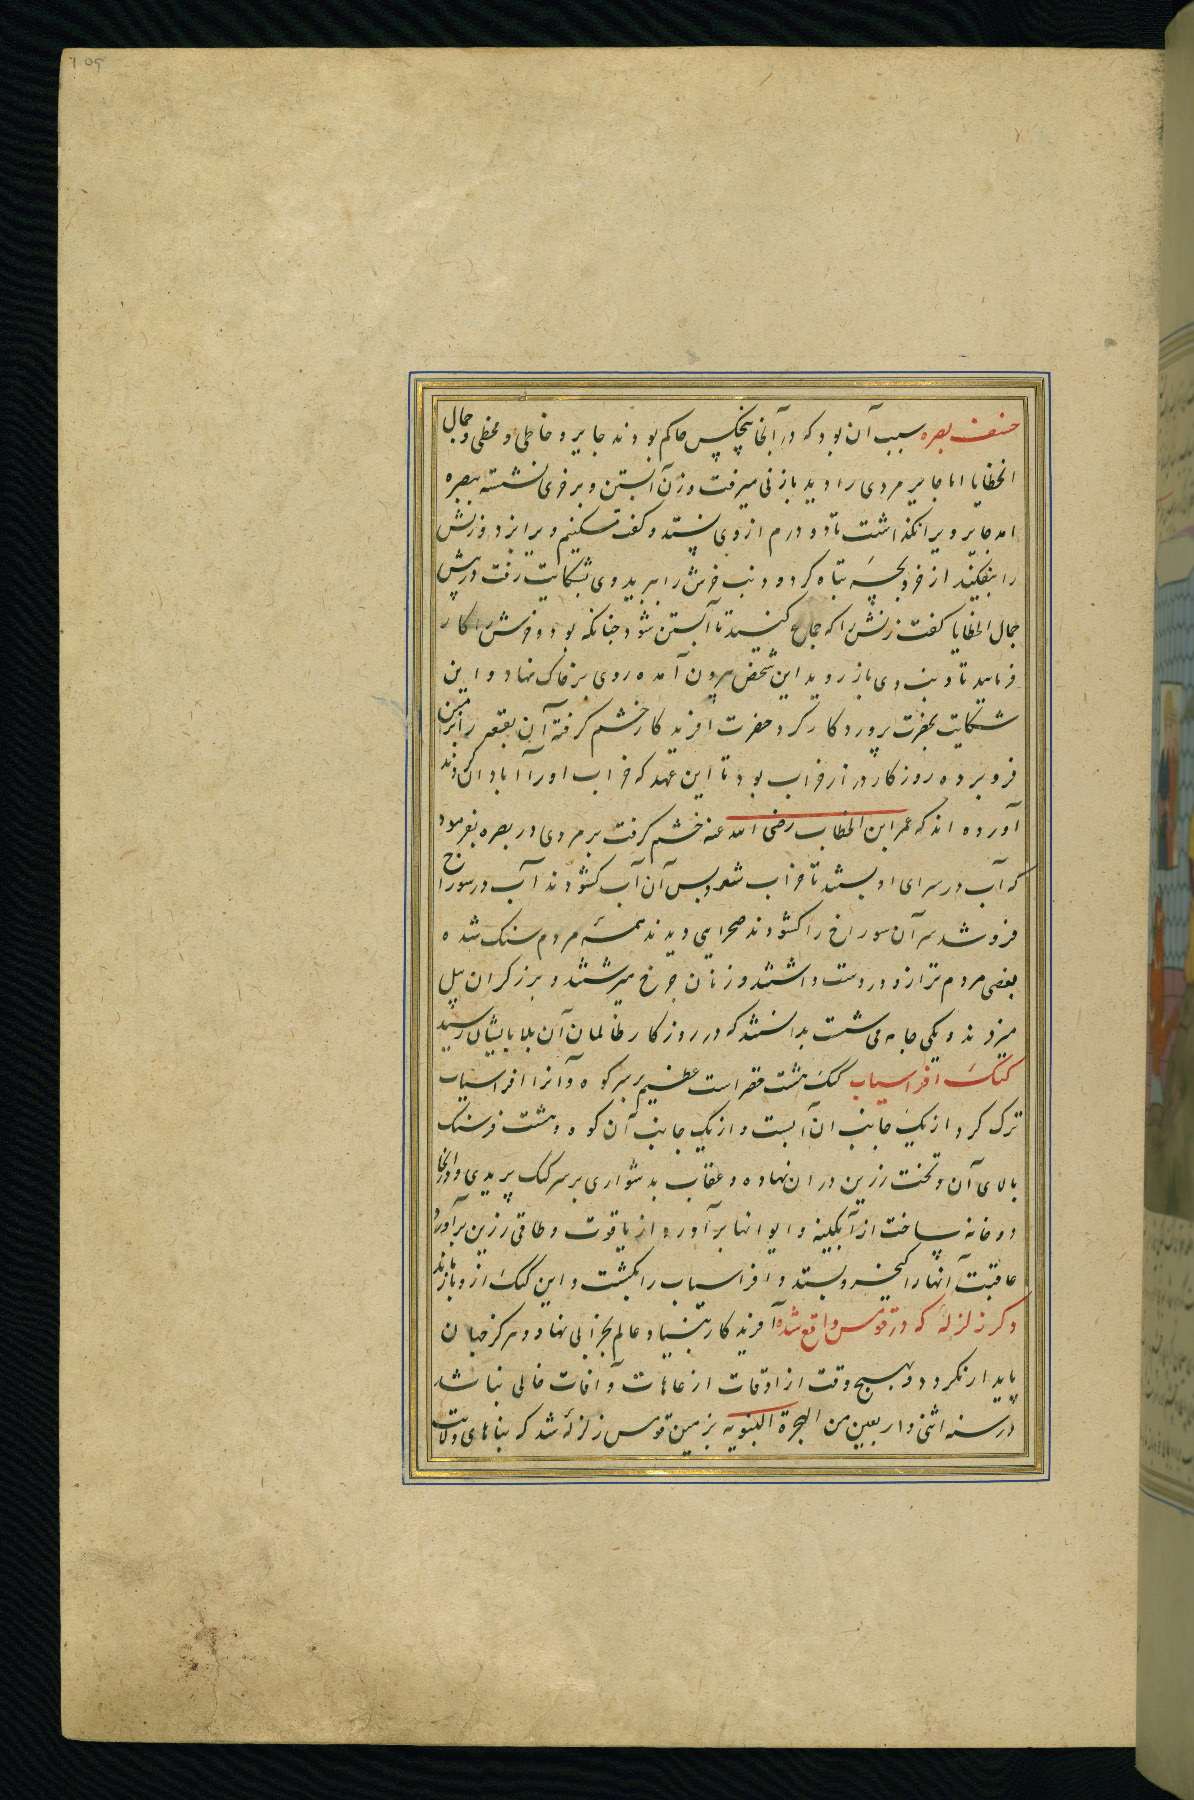 خسف بصره سبب آن بود که در آنجا پنچکس حاکم بودند جایر و خاطی و مخطی و جمال
الخطایا اما جایر مردی را دید با زنی میرفت و زن آبستن و بر خری نشسته ببصره
امد جایر ویرا نکذاشت تا دو درم ازوی بستد و کفت مسکینم ویرا بزد و زنش
را بیفکند از خر و بچه تباه کرد و دنب خرش را ببرید وی بشکایت رفت در پیش
جمال الخطایا کفت زنش را که جماع کنید تا آبستن شود چنانکه بود و خرش را کار
فرمایید تا دنب وی باز روید این شخص بیرون آمده روی بر خاک نهاد و این
شکایت بحضرت پروردکار کرد حضرت آفریدکار خشم کرفته آن بقعه را بزمین
فرو برده روزکار دراز خراب بود تا این عهد که خراب او را آبادان کردند
آورده اند که عمر ابن الخطاب رضی الله عنه خشم کرفت بر مردی در بصره بفرمود
که آب در سرای او ببستند تا خراب شود پس آن آب کشودند آب در سوراخ
فرو شد سر آن سوراخ را کشودند صحرایی دیدند همه مردم سنک شده
بعضی مردم ترازو در دست داشتند و زنان چرخ میرشتند و برزکران بیل
میزدند و یکی جامه می شست بدانستند که در روزکار ظالمان آن بلا بایشان رسید
کنک افراسیاب کنک بهشت قصراست عظیم بر سر کوه و آنرا افراسیاب
ترک کرد از یک جانب آن آبست و از یک جانب آن کوه و هشت فرسنک
بالای آن و تخت زرین در ان نهاده و عقاب بدشواری بر سر کنک پریدی و در آنجا
دو خانه ساخت از آبکینه و ایوانها برآورد از یاقوت و طاقی زرین برآورد
عاقبت آنها را کیخسرو بستد و افراسیاب را بکشت و این کنک ازو بازماند
ذکر زلزله که در قومس واقع شده آفریدکار بنیاد عالم بخرابی نهاد و مرکز جهان
پایدار نکردد و بهیج وقت از اوقات از عاهات و آفات خالی نباشد
در سنه اثنی و اربعین من الهجرة النبویه بزمین قومس زلزله شد که بناهای ولایت